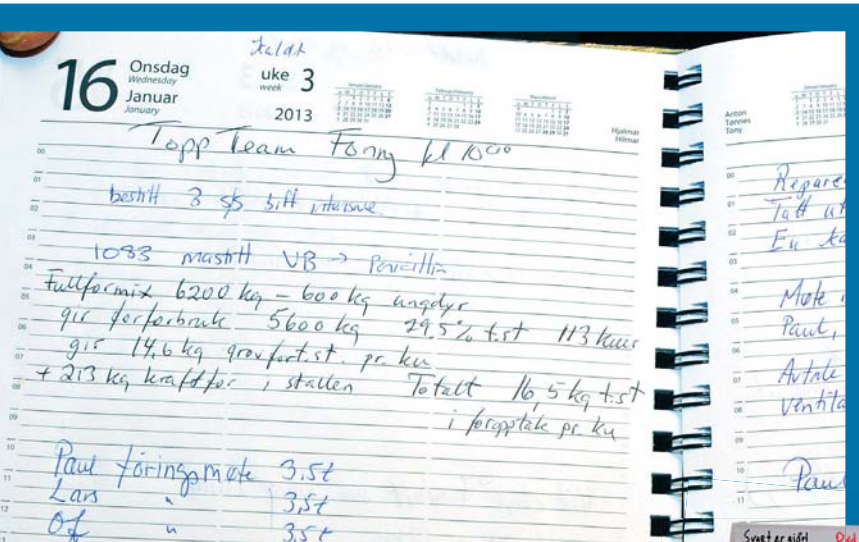 kaldt
16 Onsdag uke 3
Wednesday week
Januar
January 2013
Hjalmar
Hilmar
Topp Team Fonny kl 10⁰⁰
bestilt 3 s/s biff intensive
1083 mastitt VB → Penicillin
Fullformix 6200 kg – 600 kg ungdyr
gir forforbruk 5600 kg 29,5% t.st 113 kuer
gir 14,6 kg grovfort.st. pr. ku
+ 213 kg kraftfor i stallen Totalt 16,5 kg t.st
i foropptak pr. ku
Paul fôringsmøte 3,5t
Lars " 3,5t
Of " 3,5t
Anton
Tønnes
Tony
Repare
Tatt ut
En ka
Møte
Paul,
Avtale
ventila
Paul
Svart er gjort